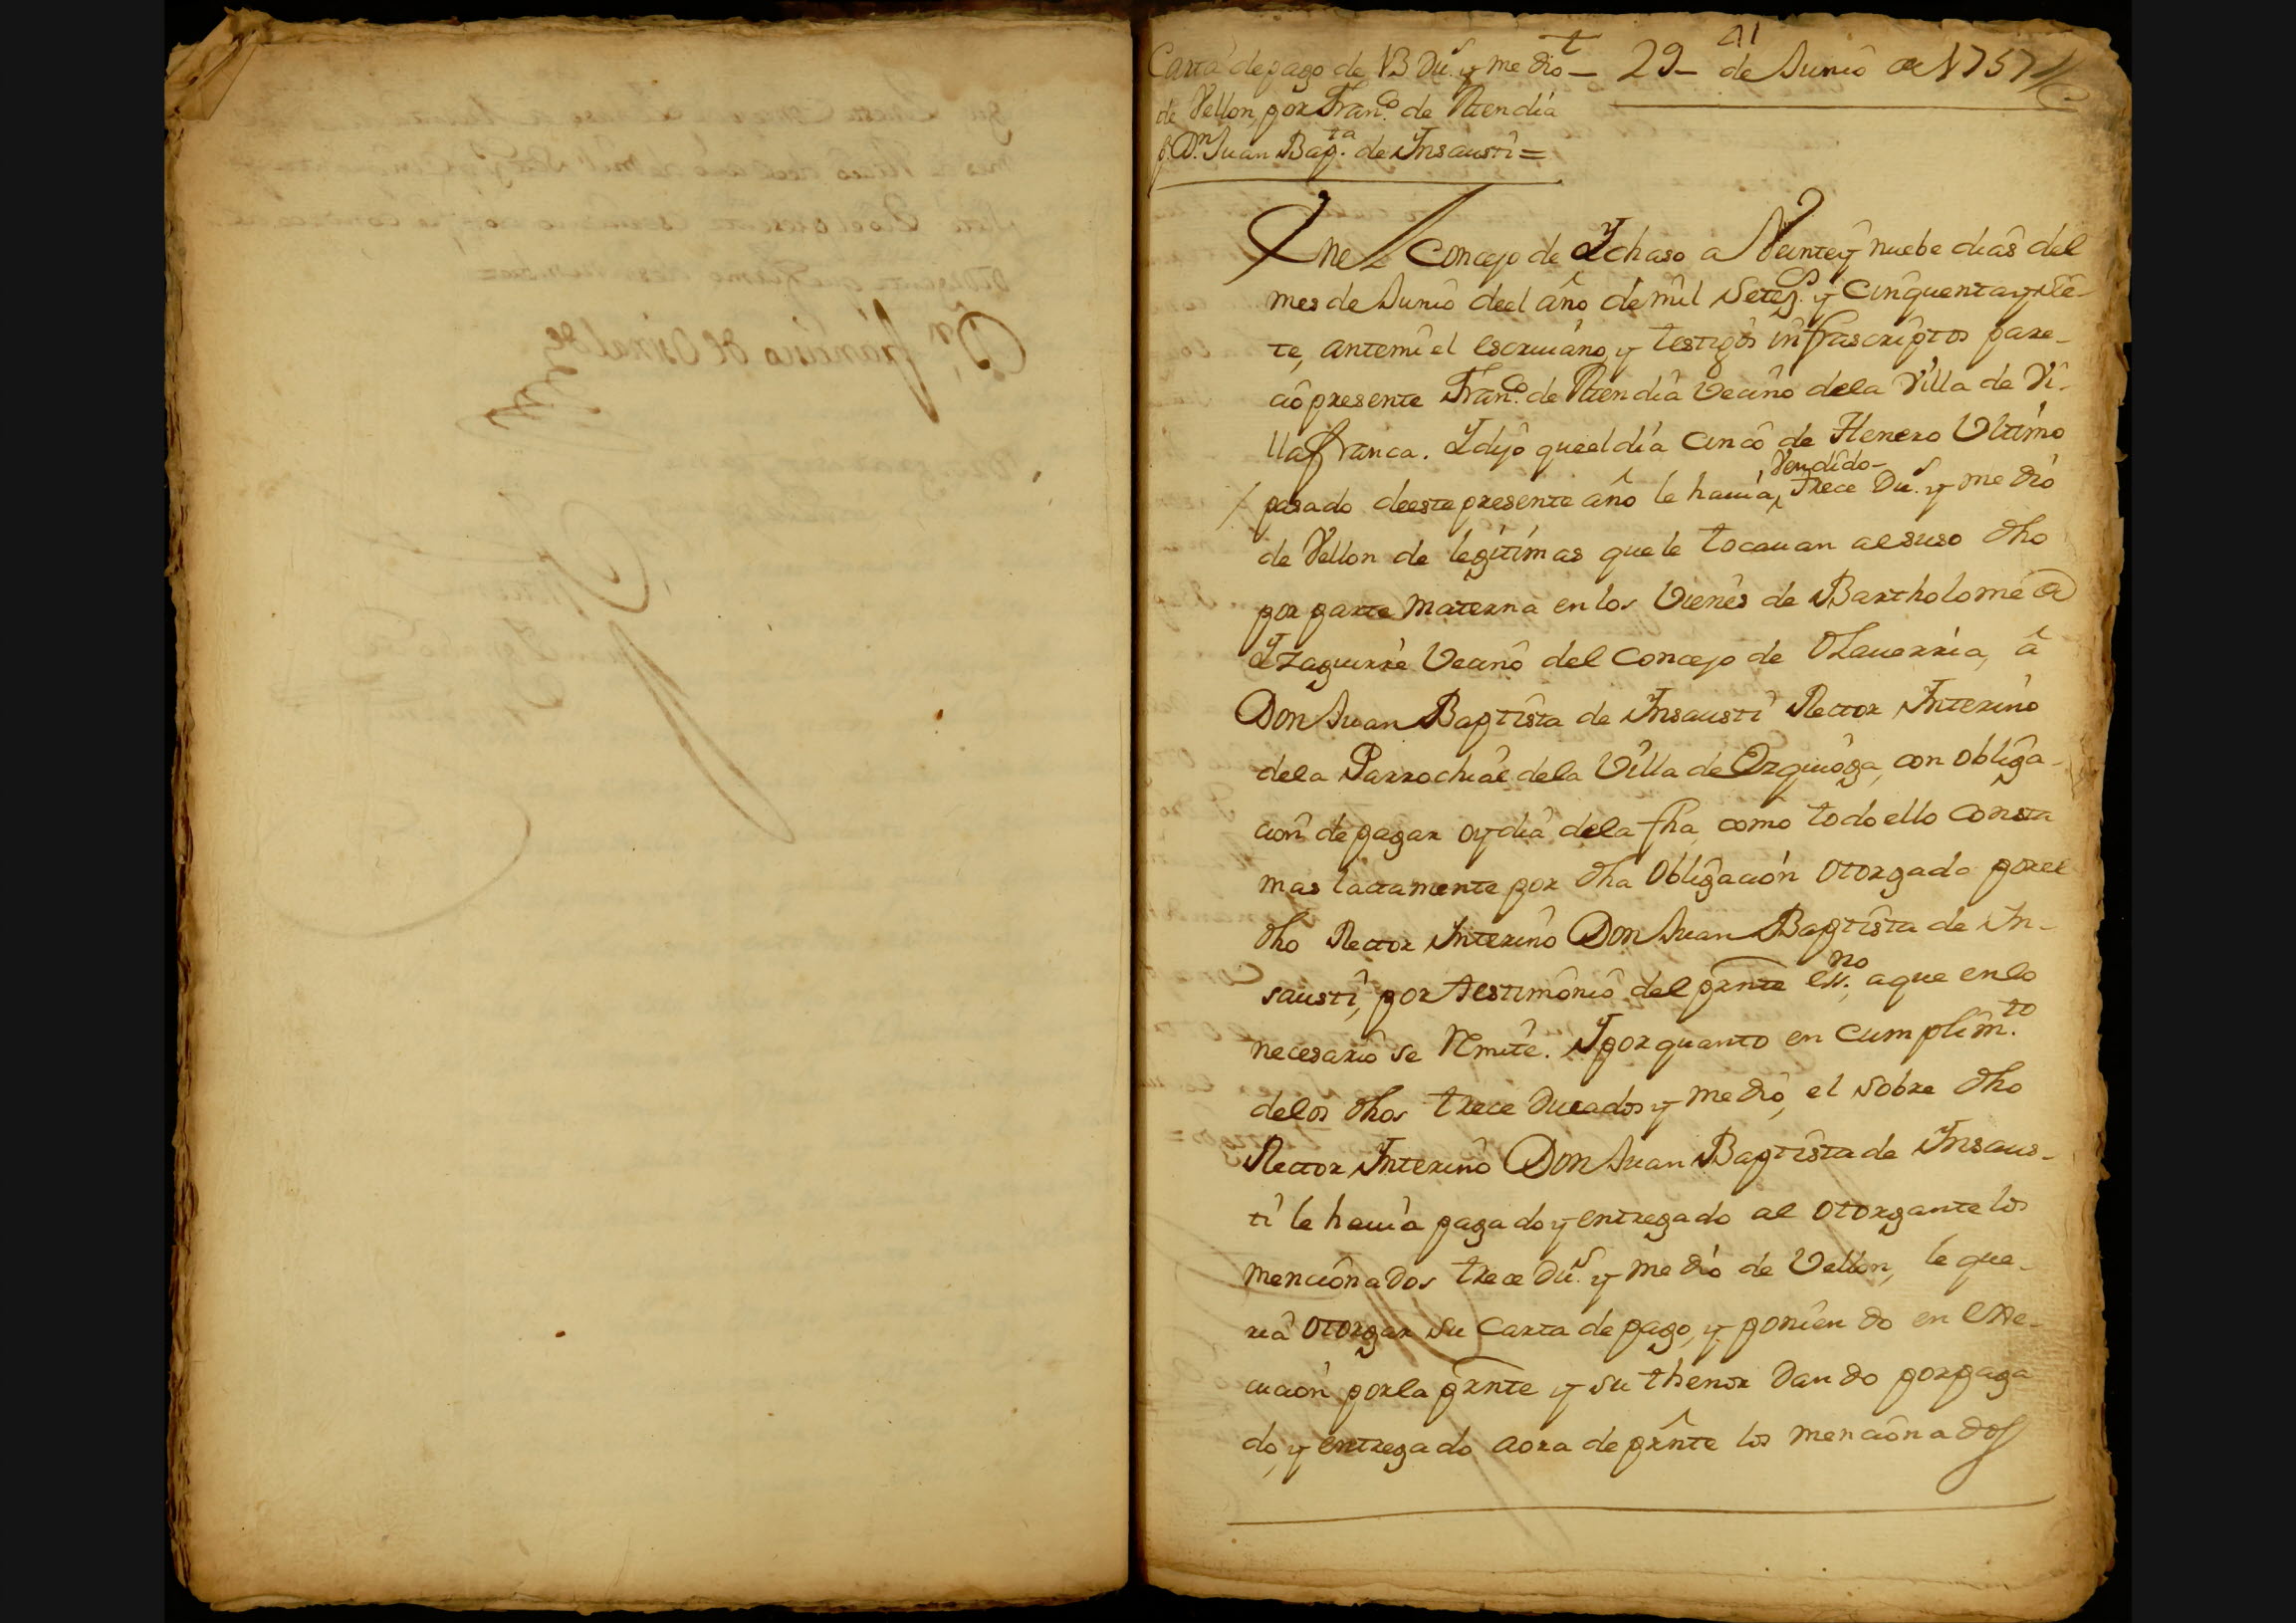 41
Carta de pago de 13 Dus. y medio – 29– de Junio de 1757
de Vellon, por Franco. de Atendia
Dn. Juan Bapta. de Insausti =
Enel Concejo de Ychaso a Veintey nuebe dias del
mes de Junio deel año de mil Setezos. y Cinquenta y sie-
te, antemi el escriuano, y testigos infrascriptos pare-
cio presente Franco. de Atendia Vecino dela Villa de Vi-
llafranca. Ydijo queel dia cinco de Henero Ultimo
pasado deeste presente año le hauia Vendido trece Dus. y medio
de Vellon de legitimas que le tocauan al suso dho
por parte materna en los Vienes de Bartholome de
Yzaguirre Vecino del Concejo de Olauerria, â
Don Juan Baptista de Insausti Rector Interino
dela Parrochial dela Villa de Ezquioga, con obliga-
cion de pagar oy dia dela fha, como todo ello consta
mas lactamente por dha Obligacion otorgada por el
dho Rector Interino Don Juan Baptista de In-
sausti, por testimonio del prnte essno. aque en lo
necesario se Remite. Y por quanto en cumplimto.
delos dhos trece Ducados y medio, el Sobre dho
Rector Interino Don Juan Baptista de Insaus-
ti le hauia pagado y entregado al otorgante los
mencionados trece Dus. y medio de Vellon, le que-
ria otorgar su Carta de pago, y poniendo en exe-
cucion por la prnte y su thenor Dando por paga
do, y entregado aora de prnte los mencionados